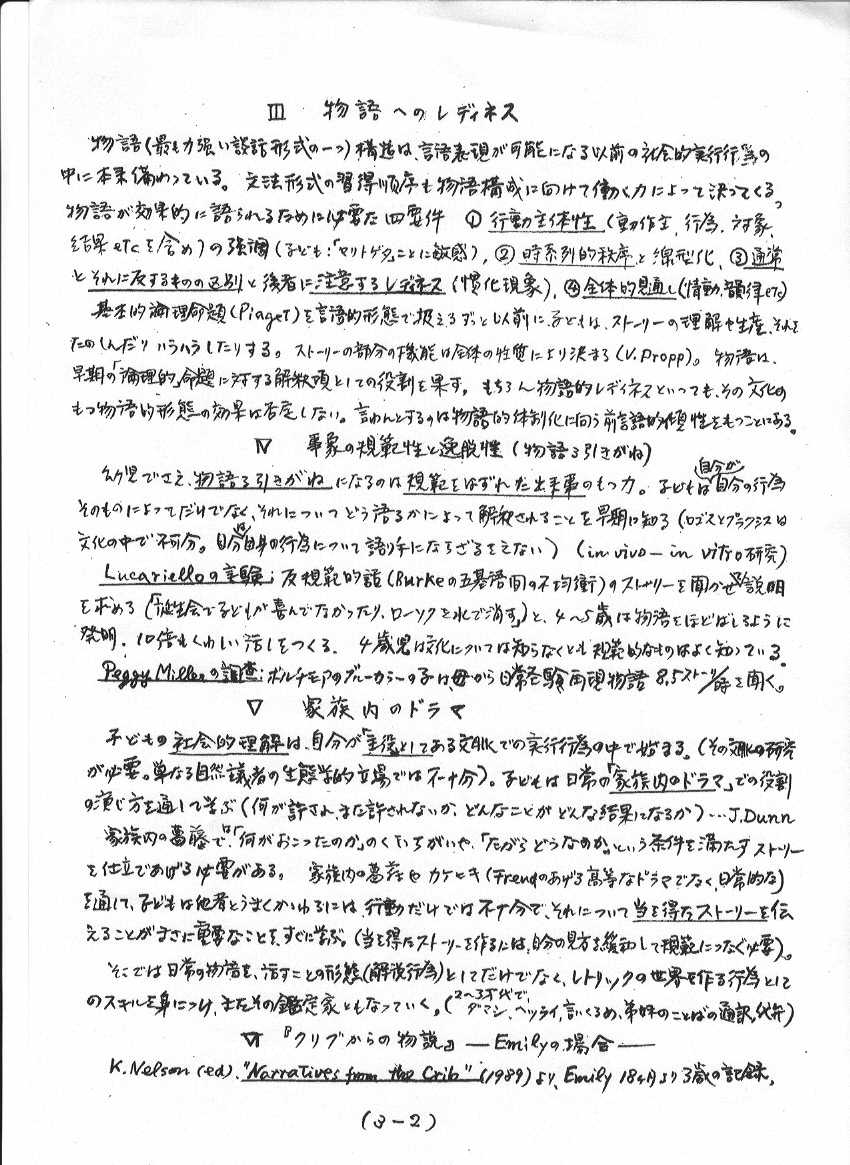 Ⅲ 物語へのレディネス
物語(最も力強い談話形式の一つ)構造は、言語表現が可能になる以前の社会的実行行為の
中に本来備わっている。文法形式の習得順序も物語構成に向けて働く力によって決ってくる。
物語が効果的に語られるために必要な四要件 ① 行動主体性 (動作主、行為、対象、
結果etcを含め)の強調(子ども:「ヤリトゲタ」ことに敏感)、② 時系列的秩序と線型化、③ 通常
とそれに反するものの区別と後者に注意するレディネス (慣化現象)、④ 全体的見通し(情動、韻律etc)
基本的論理命題(Piaget)を言語的形態で扱えるずっと以前に、子どもは、ストーリーの理解や生産、それを
たのしんだりハラハラしたりする。ストーリーの部分の機能は全体の性質により決まる(V.Propp)。物語は、
早期の「論理的」命題に対する解釈項としての役割を果す。もちろん物語的レディネスといっても、その文化の
もつ物語的形態の効果は否定しない。言わんとするのは物語的体制化に向う前言語的傾性をもつことにある。
Ⅳ 事象の規範性と逸脱性 (物語る引きがね)
幼児でさえ、物語る引きがねになるのは規範をはずれた出来事のもつ力。子どもは自分が自分の行為
そのものによってだけでなく、それについてどう語るかによって解釈されることを早期に知る (ロゴスとプラクシスは
文化の中で不可分。自分は自身の行為について語り手にならざるをえない) (in vivo — in vitro研究)
Lucarielloの実験; 反規範的話(Burkeの五基語間の不均衡)のストーリーを聞かせ説明
を求める (「誕生会で子どもが喜んでなかったり、ローソクを水で消す」)と、4〜5歳は物語をほどばしるように
発明、10倍もくわしい話しをつくる。4歳児は文化については知らなくとも規範的なものはよく知っている。
Peggy Millerの調査: ボルチモアのブルーカラーの子は、母から日常経験再現物語 8.5ストーリー/時を聞く。
Ⅴ 家族内のドラマ
子どもの社会的理解は、自分が「主役」としてある文脈での実行行為の中で始まる。(その文脈の研究
が必要。単なる自然識者の生態学的立場では不十分)。子どもは日常の「家族内のドラマ」での役割
の演じ方を通して学ぶ (何が許され、また許されないか、どんなことがどんな結果になるか) … J.Dunn
家族内の葛藤では、「何がおこったのか」のくいちがいや、「だからどうなのか」という条件を満たすストーリー
を仕立てあげる必要がある。家族内の葛藤やカケヒキ(Freudのあげる高等なドラマでなく、日常的な)
を通して、子どもは他者とうまくかかわるには、行動だけでは不十分で、それについて当を得たストーリーを伝
えることがまさに重要なことを、すぐに学ぶ。(当を得たストーリーを作るには、自分の見方を緩和して規範につなぐ必要)。
そこでは日常の物語を、話すことの形態(解説行為)としてだけでなく、レトリックの世界を作る行為として
のスキルを身につけ、またその鑑定家ともなっていく。(2〜3才代で、ダマシ、ヘツライ、言いくるめ、弟妹のことばの通訳、代弁)
Ⅵ 『クリブからの物説』 — Emilyの場合 —
K. Nelson (ed). "Narratives from the Crib" (1989)より、Emily 18ヶ月より3歳の記録。
(3-2)